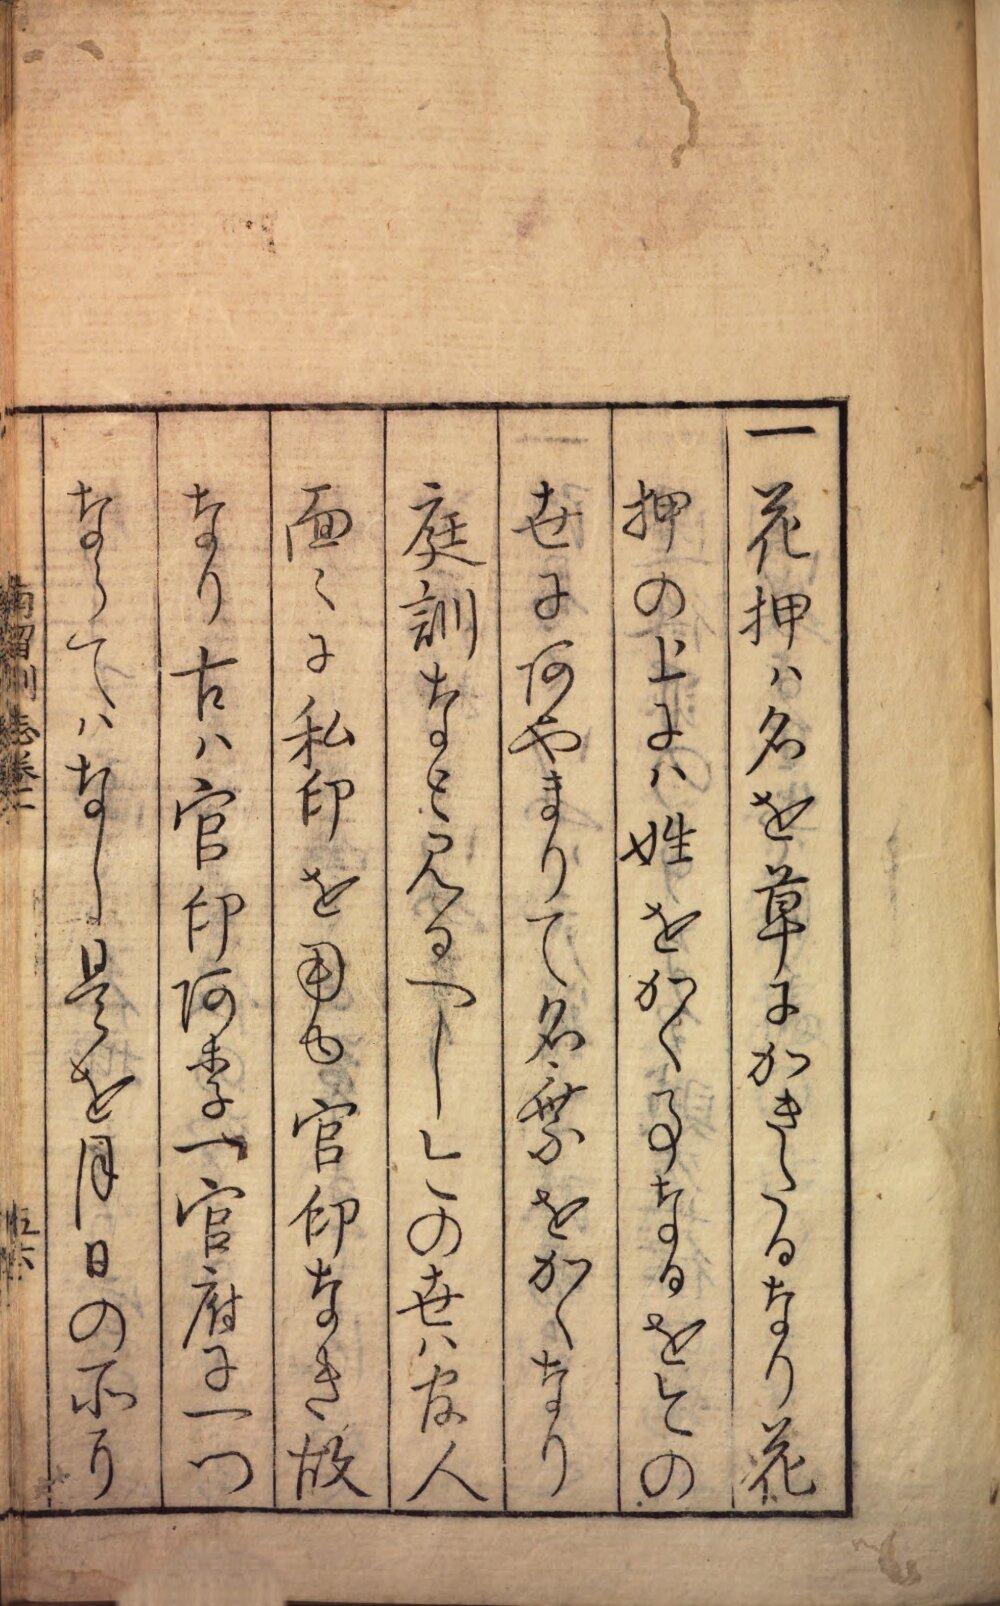 一花押ハ名を草にかきたるなり花
押の上にハ姓をかく事なるを今の
世にあやまりて名乗をかくなり
庭訓なと見るへし今の世ハ官人
面々に私印を用ゆ官印なき故
なり古ハ官印あり一官府に一つ
ならてハなし是を月日の所に
南留別志巻二